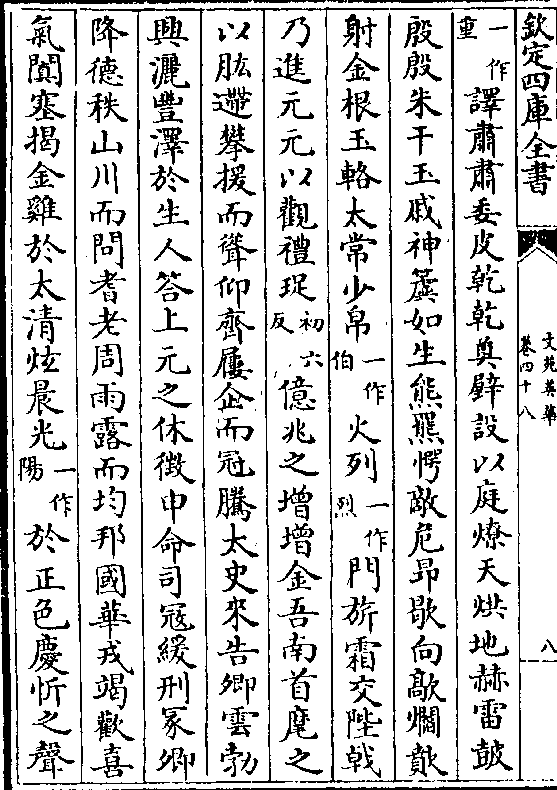 欽定四庫全書
文苑英華
卷四十八
八
一作重譯肅肅委皮乾乾奠璧設以庭燎天烘地赫雷鼓
殷殷朱干玉戚神簴如生熊羆愕敵危昂歇向歊爓歕
射金根玉輅太常少帛一作伯火列一作烈門旂霜交陛戟
乃進元元以觀禮珿初六反億兆之增增金吾南首麾之
以肱遰攀援而聳仰齊屨企而冠騰太史來告卿雲勃
興灑豐澤於生人答上元之休徵申命司冦緩刑冢卿
降德秩山川而問耆老周雨露而均邦國華戎竭歡喜
氣闐塞揭金雞於太清炫晨光一作陽於正色慶忻之聲